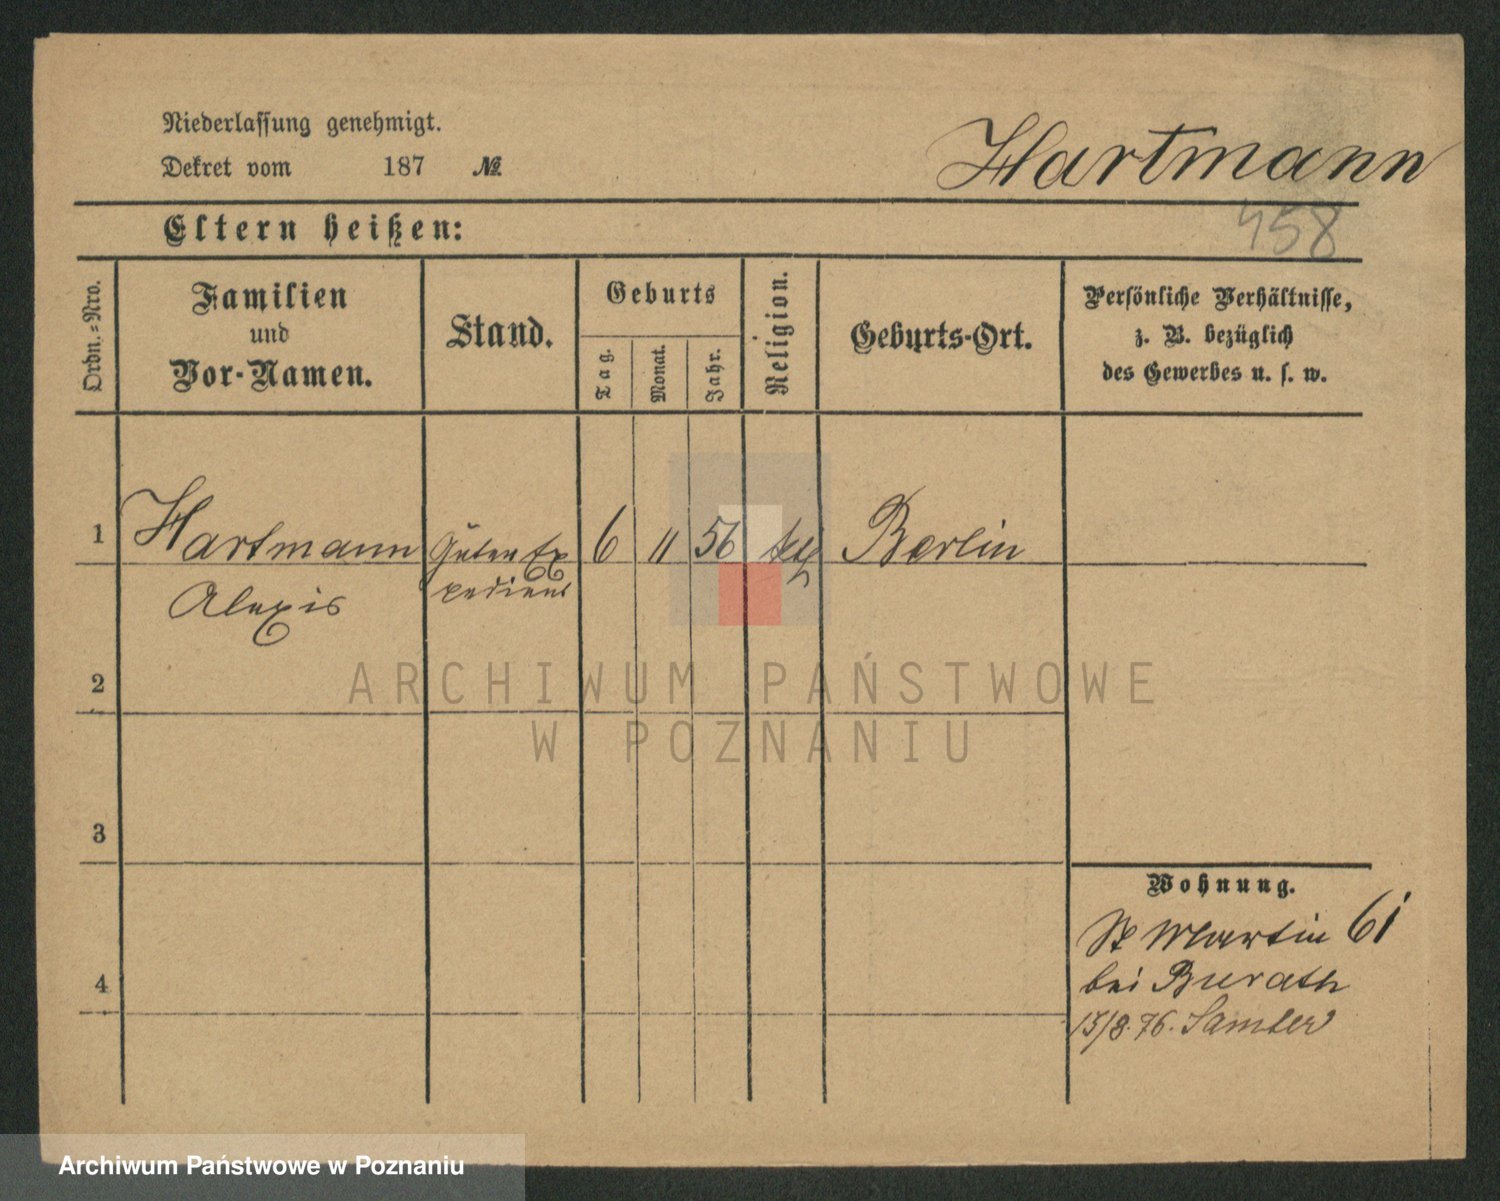 Niederlassung genehmigt.
Dekret vom 187 №
Hartmann
458
Eltern heißen:
Ordn.-Nro.
Familien
und
Vor-Namen.
Stand.
Geburts
Tag.
Monat.
Jahr.
Religion.
Geburts-Ort.
Persönliche Verhältnisse,
z. B. bezüglich
des Gewerbes u. s. w.
1 Hartmann Güter Ex 6 11 56 Berlin
Alexis pedient
2
3
4
Wohnung.
St Martin 61
bei Burath
13/8.76. Samter
ARCHIWUM PAŃSTWOWE
W POZNANIU
Archiwum Państwowe w Poznaniu